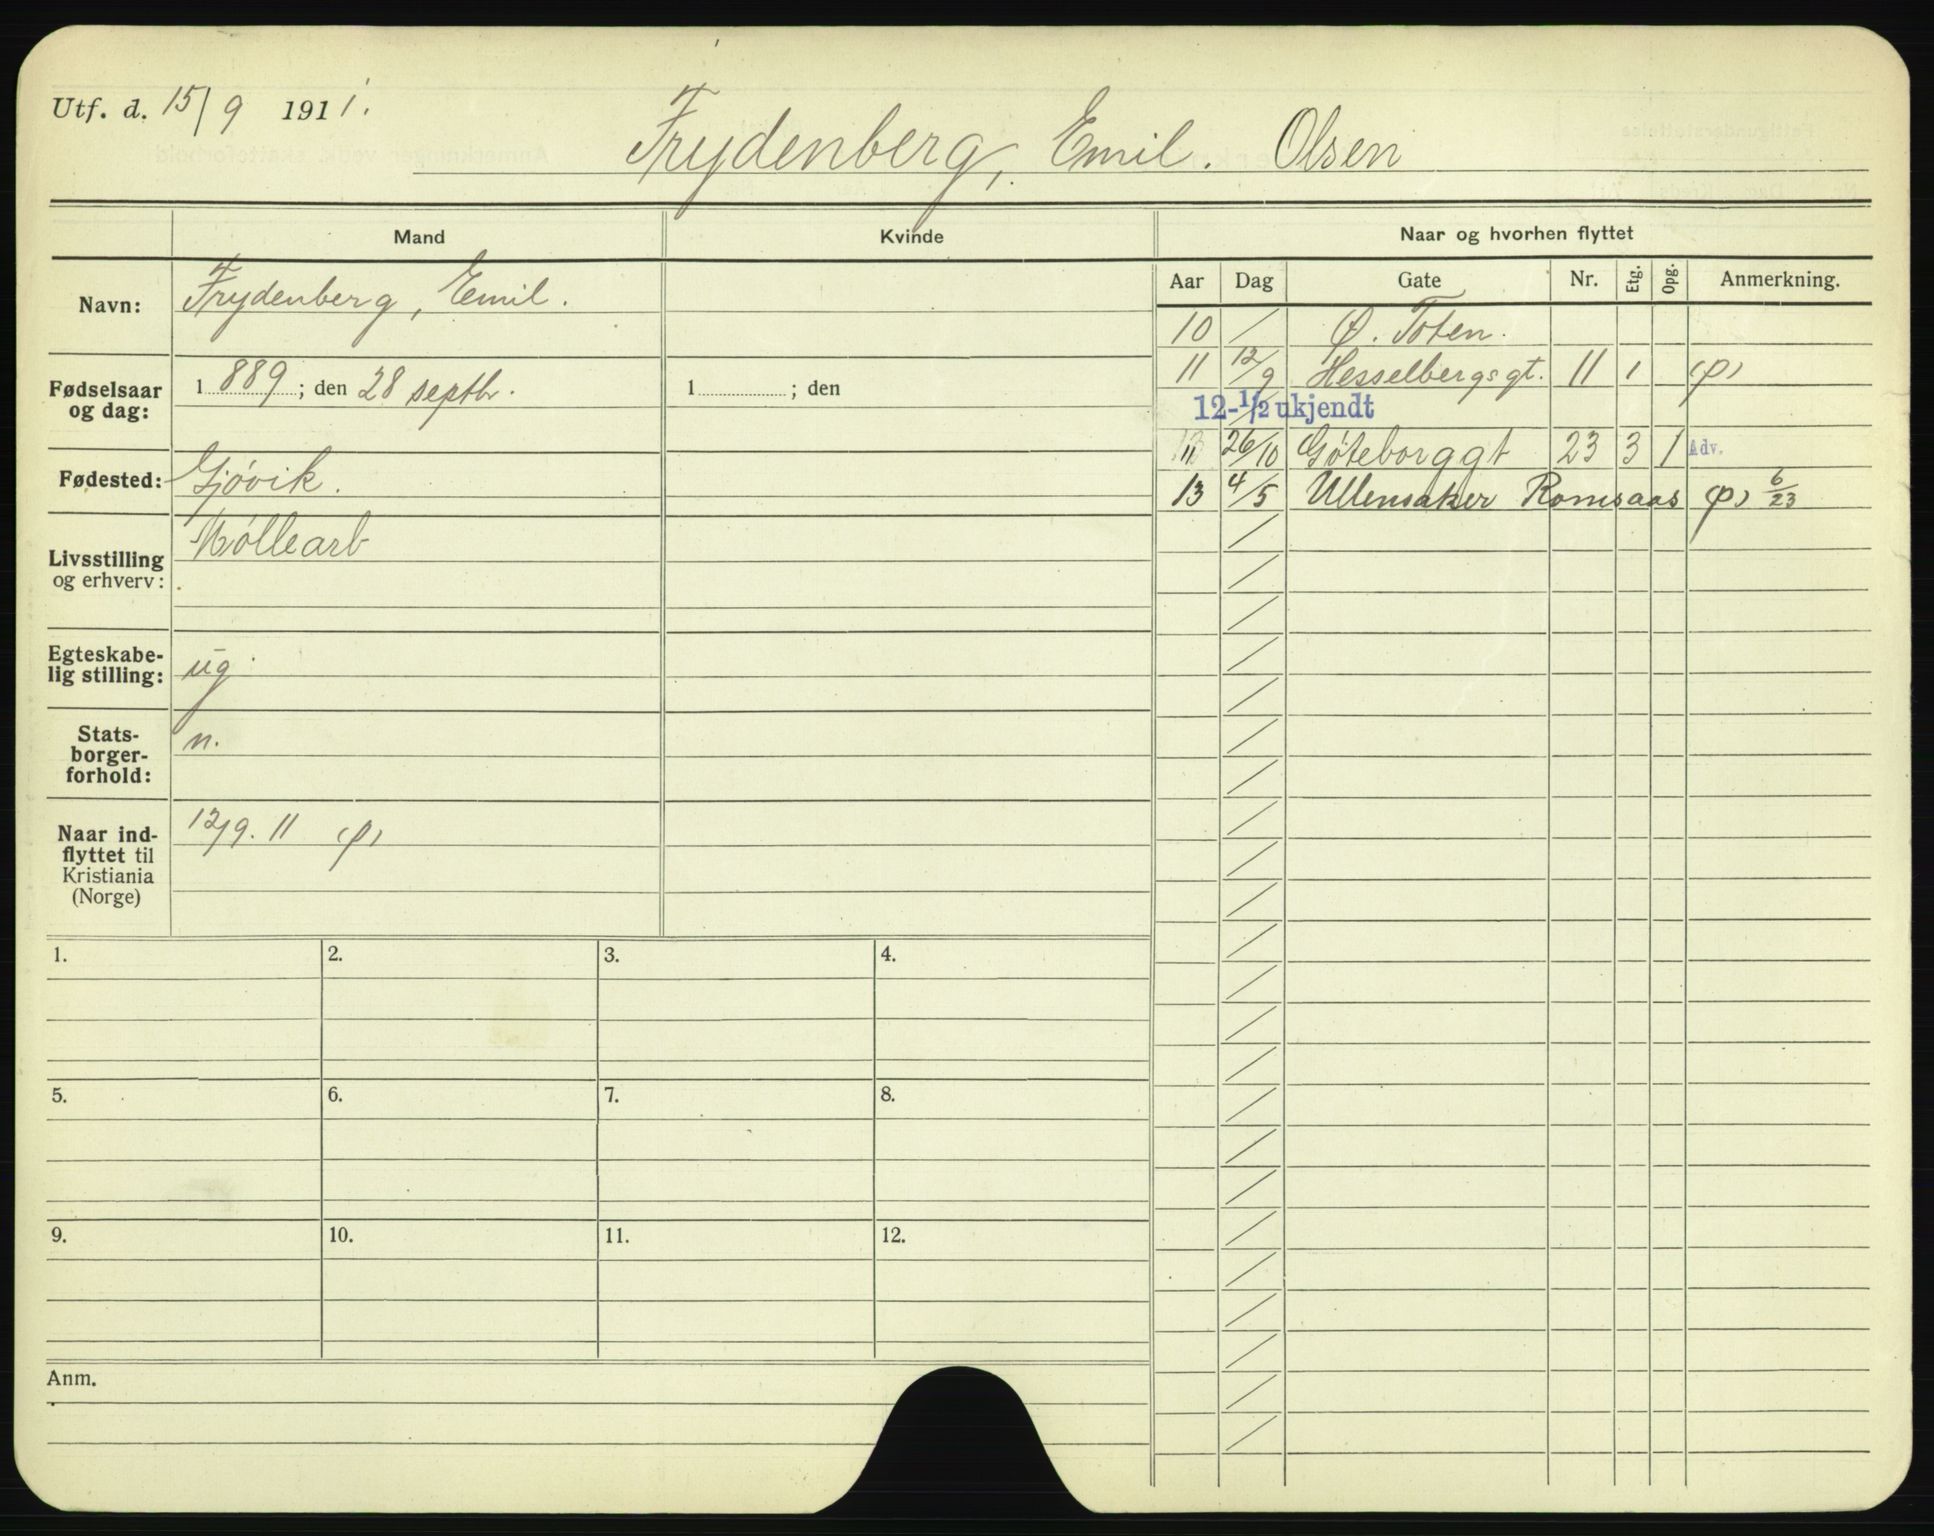 Utf. d. 15/9 1911.
Frydenberg, Emil. Olsen
Mand Kvinde Naar og hvorhen flyttet
Aar Dag Gate Nr. Etg. Opg. Anmerkning.
Navn: Frydenberg, Emil.
Fødselsaar og dag: 1889; den 28 septbr. 1 ; den
Fødested: Gjøvik.
Livsstilling og erhverv: Møllearb
Egteskabe-
lig stilling: ug.
Stats-
borger-
forhold: n.
Naar ind-
flyttet til
Kristiania
(Norge) 12/9. 11 (p)
10 / Ø. Toten.
11 12/9 Hesselbergsgt. 11 1 (p)
12-1/2 ukjendt
11 26/10 Gøteborggt 23 3 1 Adv.
13 4/5 Ullensaker Romsaas (p) 6/23
1. 2. 3. 4.
5. 6. 7. 8.
9. 10. 11. 12.
Anm.